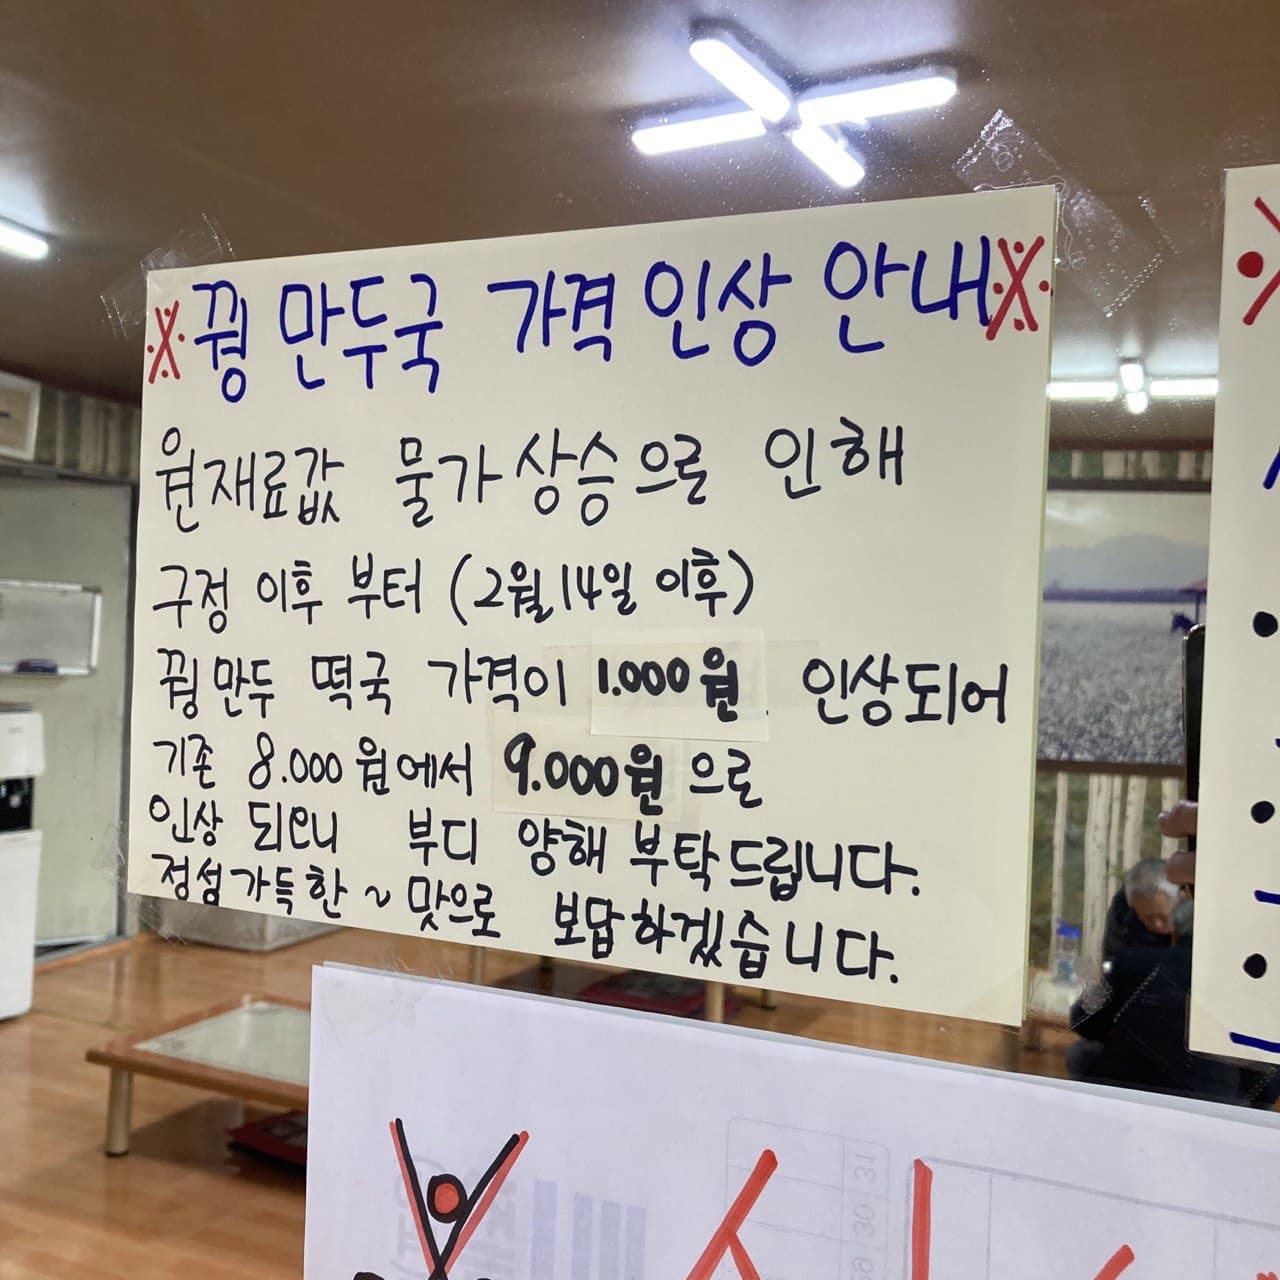 ※꿩 만두국 가격 인상 안내※
원재료값 물가상승으로 인해
구정 이후 부터 (2월14일 이후)
꿩만두 떡국 가격이 1.000원 인상되어
기존 8.000원에서 9.000원으로
인상 되오니 부디 양해 부탁드립니다.
정성가득한 ~ 맛으로 보답하겠습니다.